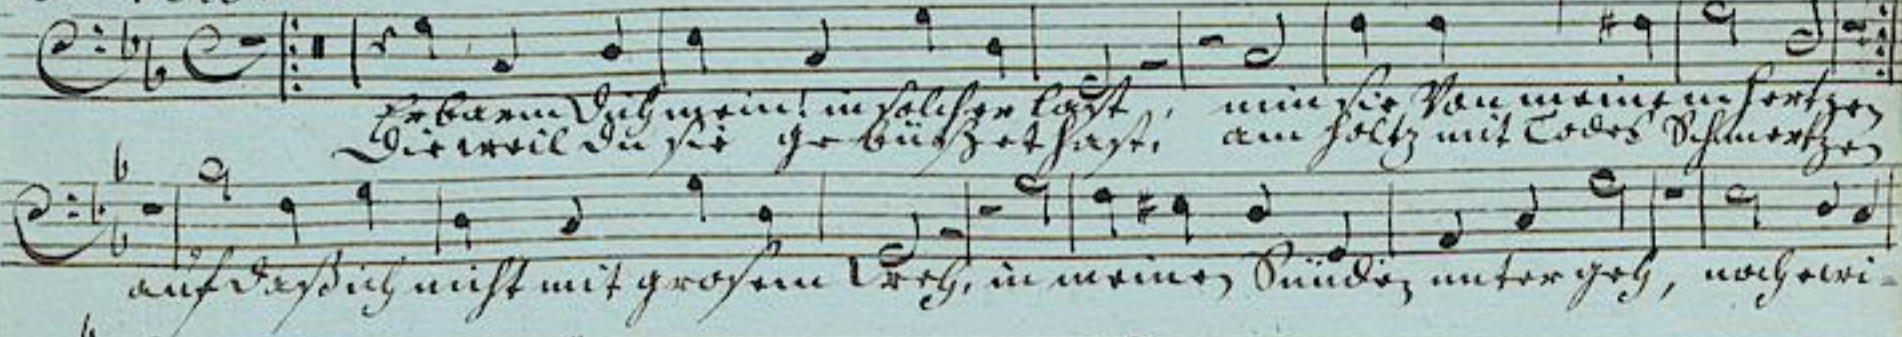 Erbarm Dich mein in solcher last, nim sie Von meinem hertzen
Die weil du sie gebüßet hast, am holtz mit Todes Schmertzen
auf daß ich nicht mit großem Weh, in meinen Sünden untergeh, noch ewi-